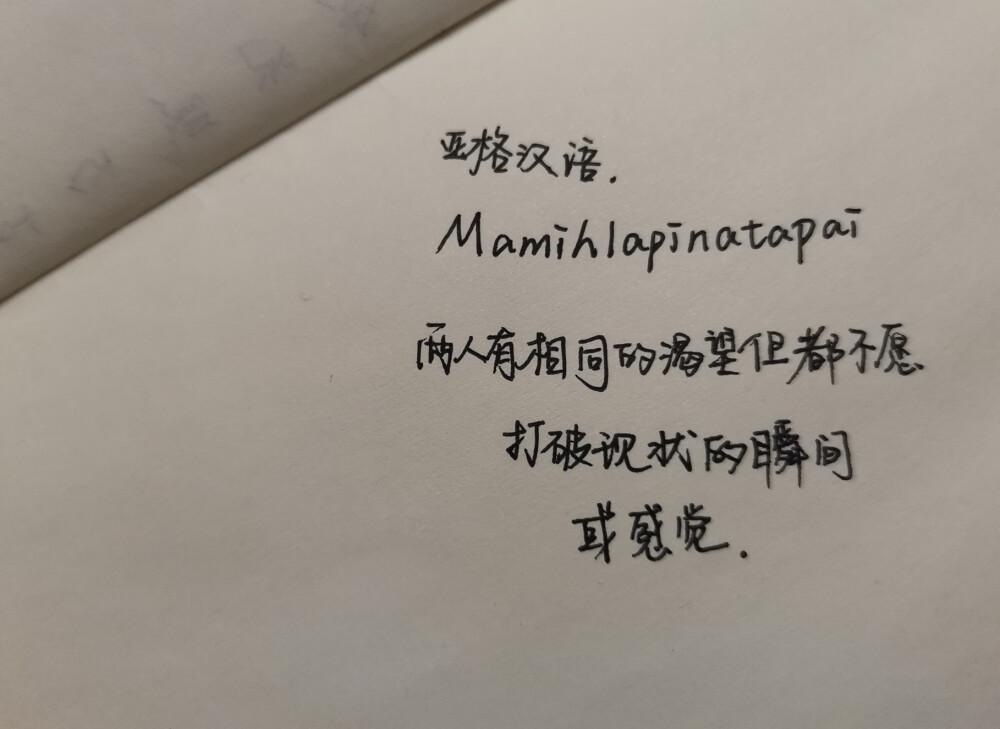 亚格汉语.
Mamihlapinatapai
两人有相同的渴望但都不愿
打破现状的瞬间
或感觉.